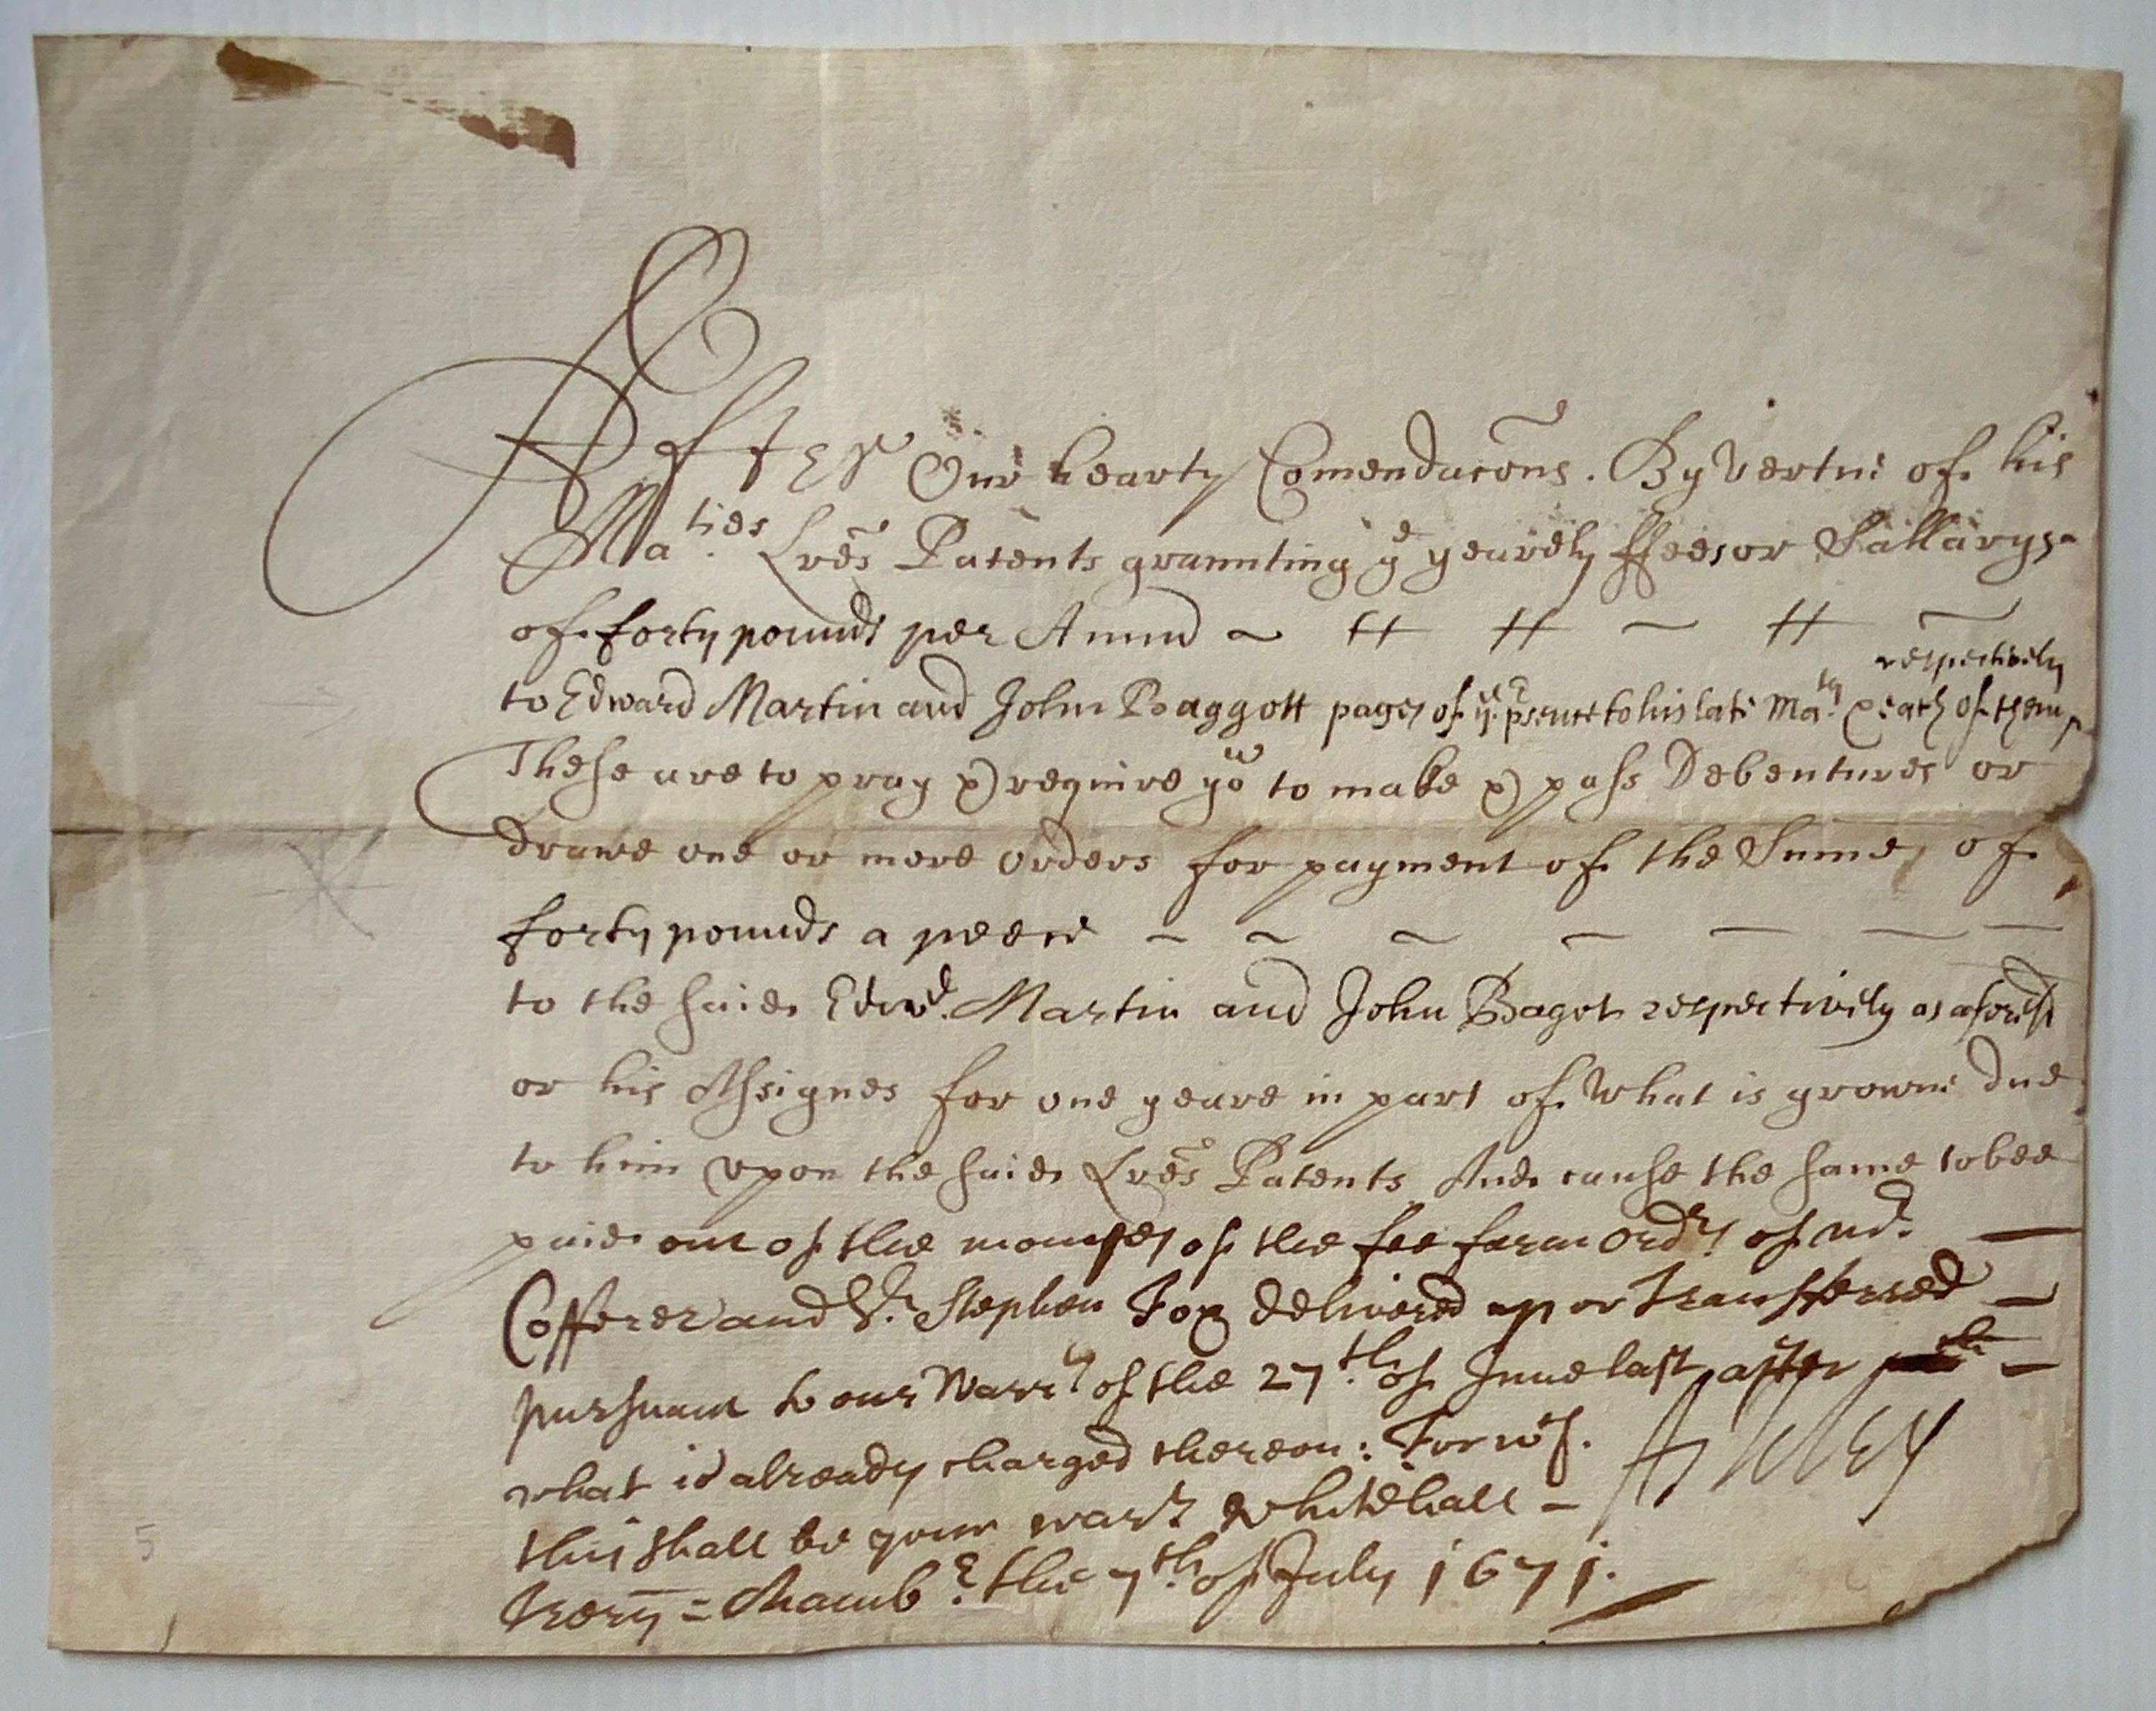 After Our hearty Comendacōns. By Vertue of his
Ma.ties Lrēs Patents graunting ye yearely ffees or Sallarys
of forty pounds per Annū
respectively
to Edward Martin and John Baggott pages of ye psence to his late Ma.ty & each of them
These are to pray & require you to make & pass Debentures or
drawe one or more Orders for payment of the Sume of
forty pounds a peece
to the said Edwd. Martin and John Bagot respectively as aforesd
or his Assignes for one yeare in part of what is growne due
to him vpon the said Lrēs Patents And cause the same to bee
paid out of the moneyes of the fee farm Ordrs of
Cofferer and Sr. Stephen Fox delivered up or transferred
pursuant to our Warrt of the 27th of June last after
what is already charged thereon: For wch.
this shall be your warrt Whitehall
Trēry = Chambr the 7th of July 1671.
Ashley
5